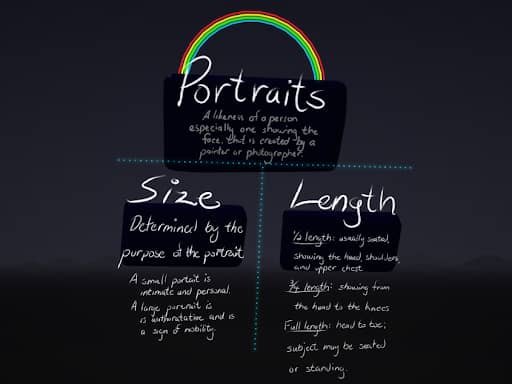 Portraits
A likeness of a person
especially one showing the
face, that is created by a
painter or photographer.
Size
Determined by the
purpose of the portrait
A small portrait is
intimate and personal.
A large portrait is
is authoratative and is
a sign of nobility.
Length
½ length: usually seated,
showing the head, shoulders,
and upper chest
¾ length: showing from
the head to the knees
Full length: head to toe;
subject may be seated
or standing.